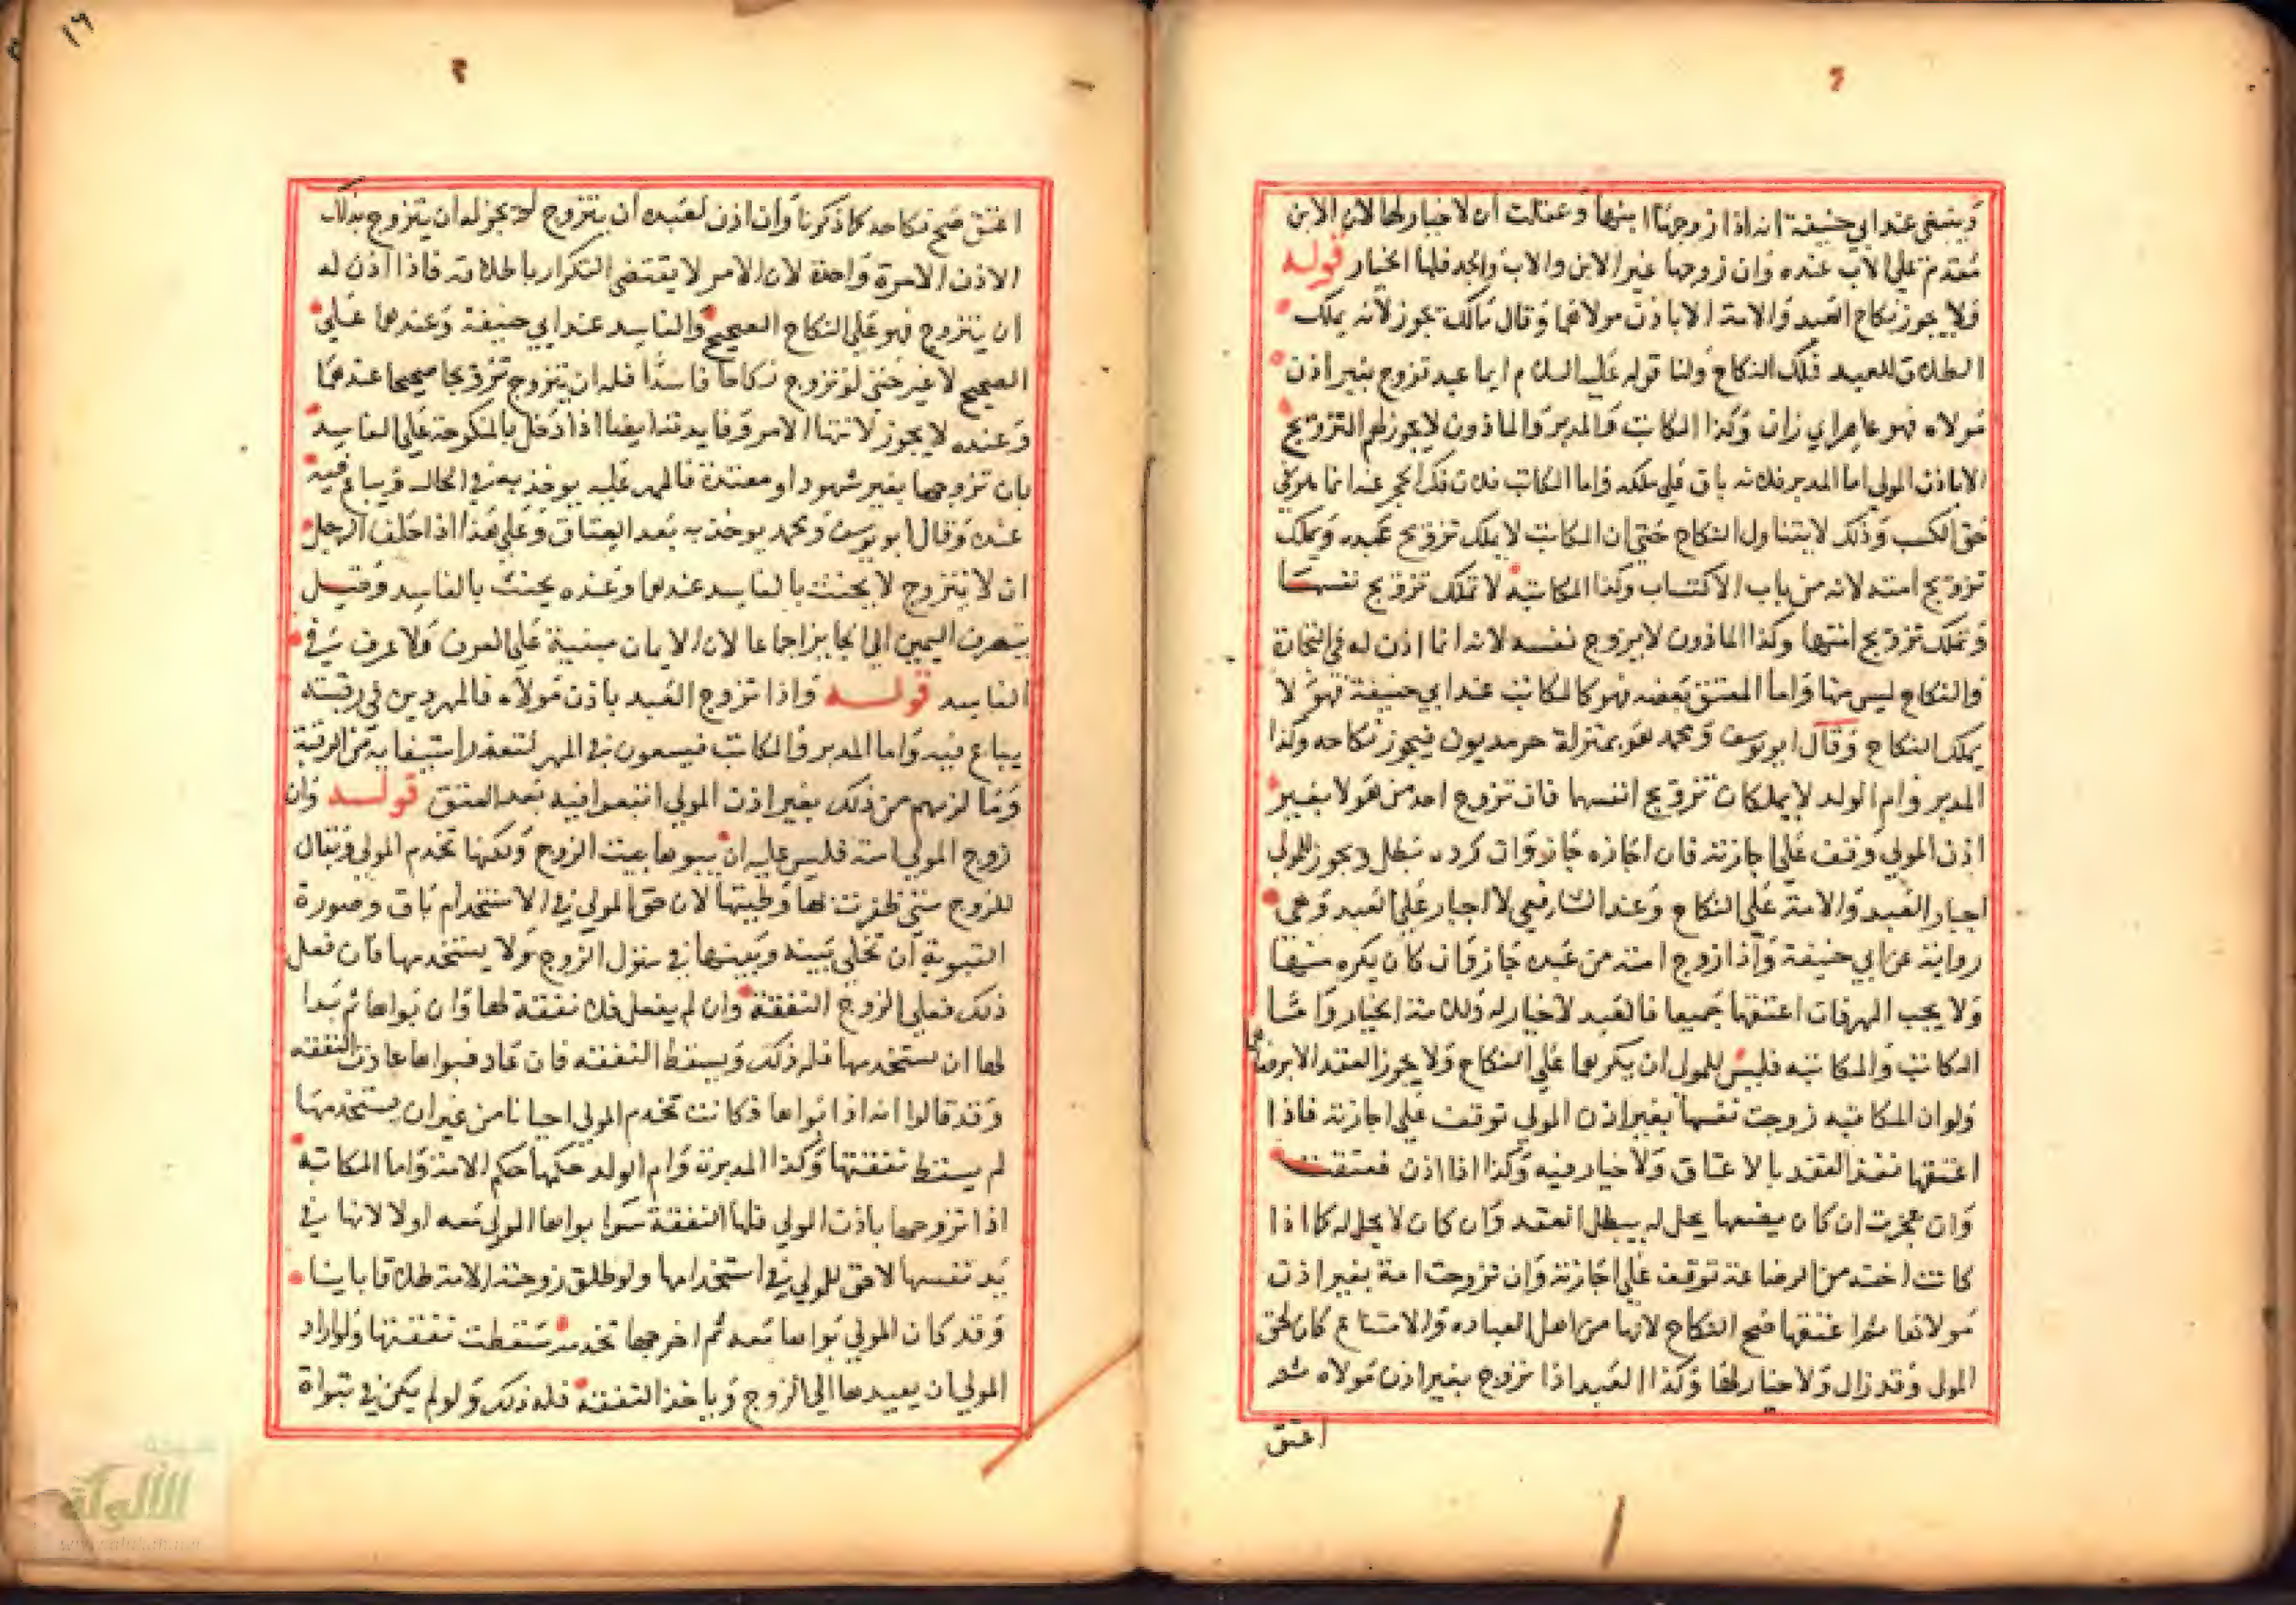 وينبغي عند ابي حنيفة انه اذا زوجها ابنها وعتقت ان لا خيار لها لان الابن
مقدم علي الاب عنده وان زوجها غير الابن والاب والجد فلها الخيار قوله
ولا يجوز نكاح العبد والامة الا باذن مولاهما وقال مالك يجوز لانه يملك
الطلاق للعبد فملك النكاح ولنا قوله عليه السلام ايما عبد تزوج بغير اذن
مولاه فهو عاهر اي زان وكذا المكاتب والمدبر والماذون لا يجوز لهم التزويج
الا باذن المولي اما المدبر فلانه باق علي ملكه واما المكاتب فلان فك الحجر عنه انما هو في
حق الكسب وذلك لا يتناول النكاح حتي ان المكاتب لا يملك تزويج عبده ويملك
تزويج امته لانه من باب الاكتساب وكذا المكاتبة لا تملك تزويج نفسها
وتملك تزويج امتها وكذا الماذون لا يزوج نفسه لانه انما اذن له في التجارة
والنكاح ليس منها واما المعتق بعضه فهو كالمكاتب عند ابي حنيفة فهو لا
يملك النكاح وقال ابو يوسف ومحمد هو بمنزلة حر مديون فيجوز نكاحه وكذا
المدبر وام الولد لا يملكان تزويج انفسهما فان تزوج احد من هولا بغير
اذن المولي وقف علي اجازته فان اجازه جاز وان كرده بطل ويجوز للمولي
اجبار العبد والامة علي النكاح وعند الشافعي لا اجبار علي العبد وهي
رواية عن ابي حنيفة واذا زوج امته من عبده جاز وان كان بكره منهما
ولا يجب المهر فان اعتقهما جميعا فالعبد لا خيار له وللامة الخيار واما
المكاتب والمكاتبه فليس للمولي ان يكرهما علي النكاح ولا يجوز العقد الا برضاهما
ولو ان المكاتبه زوجت نفسها بغير اذن المولي توقف علي اجازته فاذا
اعتقها نفذ العقد بالاعتاق ولا خيار فيه وكذا اذا اذن فعتقت
وان عجزت ان كان بضعها يحل له يبطل العقد وان كان لا يحل له كما اذا
كانت اخته من الرضاعة توقف علي اجازته وان تزوجت امة بغير اذن
مولاها ثم اعتقها صح النكاح لانها من اهل العباره والامتناع كان لحق
المولي وقد زال ولا خيار لها وكذا العبد اذا تزوج بغير اذن مولاه ثم
اعتق
اعتق صح نكاحه كما ذكرنا وان اذن لعبده ان يتزوج لم يجز له ان يتزوج بذلك
الاذن الا مرة واحدة لان الامر لا يقتضي التكرار باطلاقه فاذا اذن له
ان يتزوج فهو علي النكاح الصحيح والفاسد عند ابي حنيفة وعندهما علي
الصحيح لا غير حتي لو تزوج نكاحا فاسدا فله ان يتزوج تزويجا صحيحا عندهما
وعنده لا يجوز لانتها الامر وفايدته ايضا اذا دخل بالمنكوحة علي الفاسد
بان تزوجها بغير شهود او معتدة فالمهر عليه يوخذ به في الحال ويباع فيه
عنده وقال ابو يوسف ومحمد يوخذ به بعد العتاق وعلي هذا اذا حلف الرجل
ان لا يتزوج لا يحنث بالفاسد عندهما وعنده يحنث بالفاسد وقيل
يتصرف اليمين الي الجايز اجماعا لان الايمان مبنية علي العرف ولا عرف في
الفاسد قوله واذا تزوج العبد باذن مولاه فالمهر دين في رقبته
يباع فيه واما المدبر والمكاتب فيسعون في المهر لتعذر استيفايه من الرقبة
وما لزمهم من ذلك بغير اذن المولي اتبعوا فيه بعد العتق قوله وان
زوج المولي امته فليس عليه ان يبوها بيت الزوج ولكنها تخدم المولي ويقال
للزوج متي ظفرت بها وطيتها لان حق المولي في الاستخدام باق وصورة
التبوية ان تخلي بينه وبينها في منزل الزوج ولا يستخدمها فان فعل
ذلك فعلي الزوج النفقة وان لم يفعل فلا نفقة لها وان بواها ثم بدا
لها ان يستخدمها فله ذلك ويسقط النفقه فان عاد فبواها عادت النفقه
وقد قالوا انه اذا بواها فكانت تخدم المولي احيانا من غير ان يستخدمها
لم يسقط نفقتها وكذا المدبرة وام الولد حكمها حكم الامة واما المكاتبة
اذا تزوجها باذن المولي فلها النفقة سوا بواها المولي معه او لا لانها في
يد نفسها لا حق للمولي في استخدامها ولو طلق زوجته الامة طلاقا باينا
وقد كان المولي بواها معه ثم اخرجها تخدمه سقطت نفقتها ولو اراد
المولي ان يعيدها الي الزوج وياخذ النفقة فله ذلك ولو لم يكن في تبواة